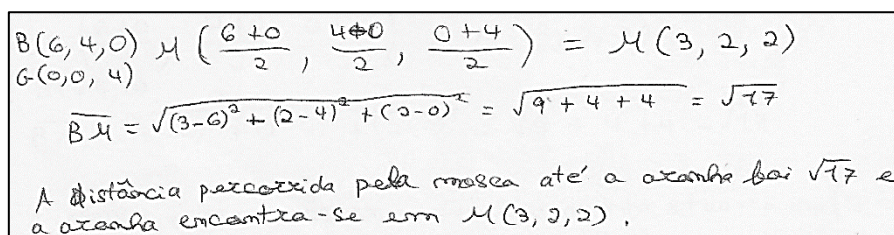 B(6,4,0) M(6+0/2, 4+0/2, 0+4/2) = M(3,2,2)
G(0,0,4)
BM = √(3-6)² + (2-4)² + (2-0)² = √9+4+4 = √17
A distância percorrida pela mosca até a aranha foi √17 e
a aranha encontra-se em M(3,2,2).